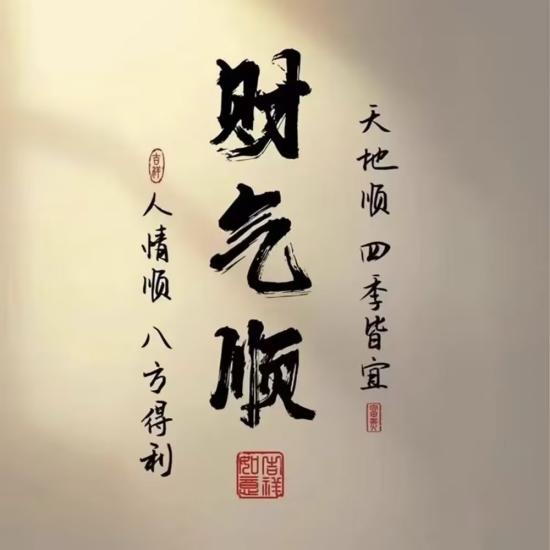 天地顺 四季皆宜
富贵
财气顺
吉祥如意
人情顺 八方得利
吉祥